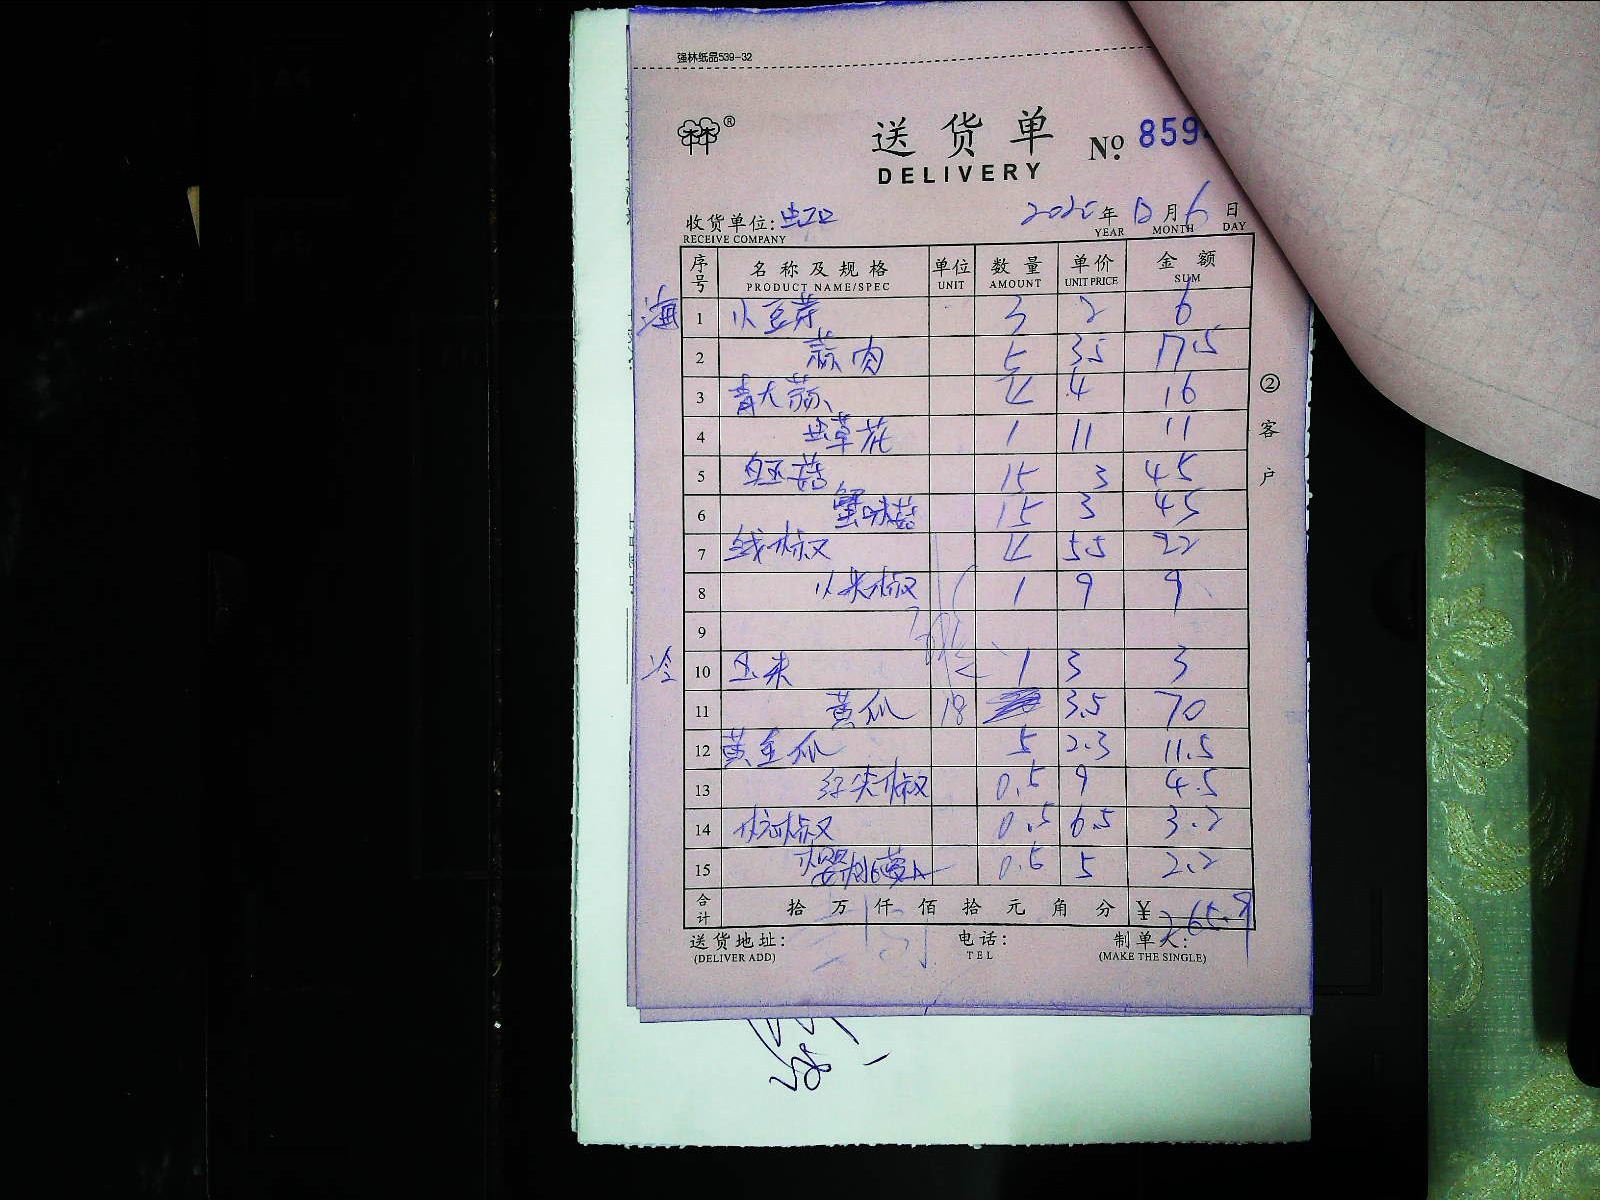 强林纸品539-32
林林®
送货单
DELIVERY
No. 859
收货单位:
RECEIVE COMPANY
年 月 6 日
YEAR MONTH DAY
序号 名称及规格 单位 数量 单价 金额
PRODUCT NAME/SPEC UNIT AMOUNT UNIT PRICE SUM
海 1 小豆芽 3 2 6
2 蒜肉 5 3.5 17.5
3 青大蒜 4 4 16
4 虫草花 1 11 11
5 15 3 45
6 蟹味菇 15 3 45
7 线椒 4 5.5 22
8 小米椒 1 9 9
9
冷 10 玉米 1 3 3
11 黄瓜 18 3.5 70
12 黄金瓜 5 2.3 11.5
13 红尖椒 0.5 9 4.5
14 杭椒 0.5 6.5 3.2
15 樱桃萝卜 0.5 5 2.2
合计 拾 万 仟 佰 拾 元 角 分 ¥ 265.9
② 客户
送货地址: 电话: 制单人:
(DELIVER ADD) TEL (MAKE THE SINGLE)